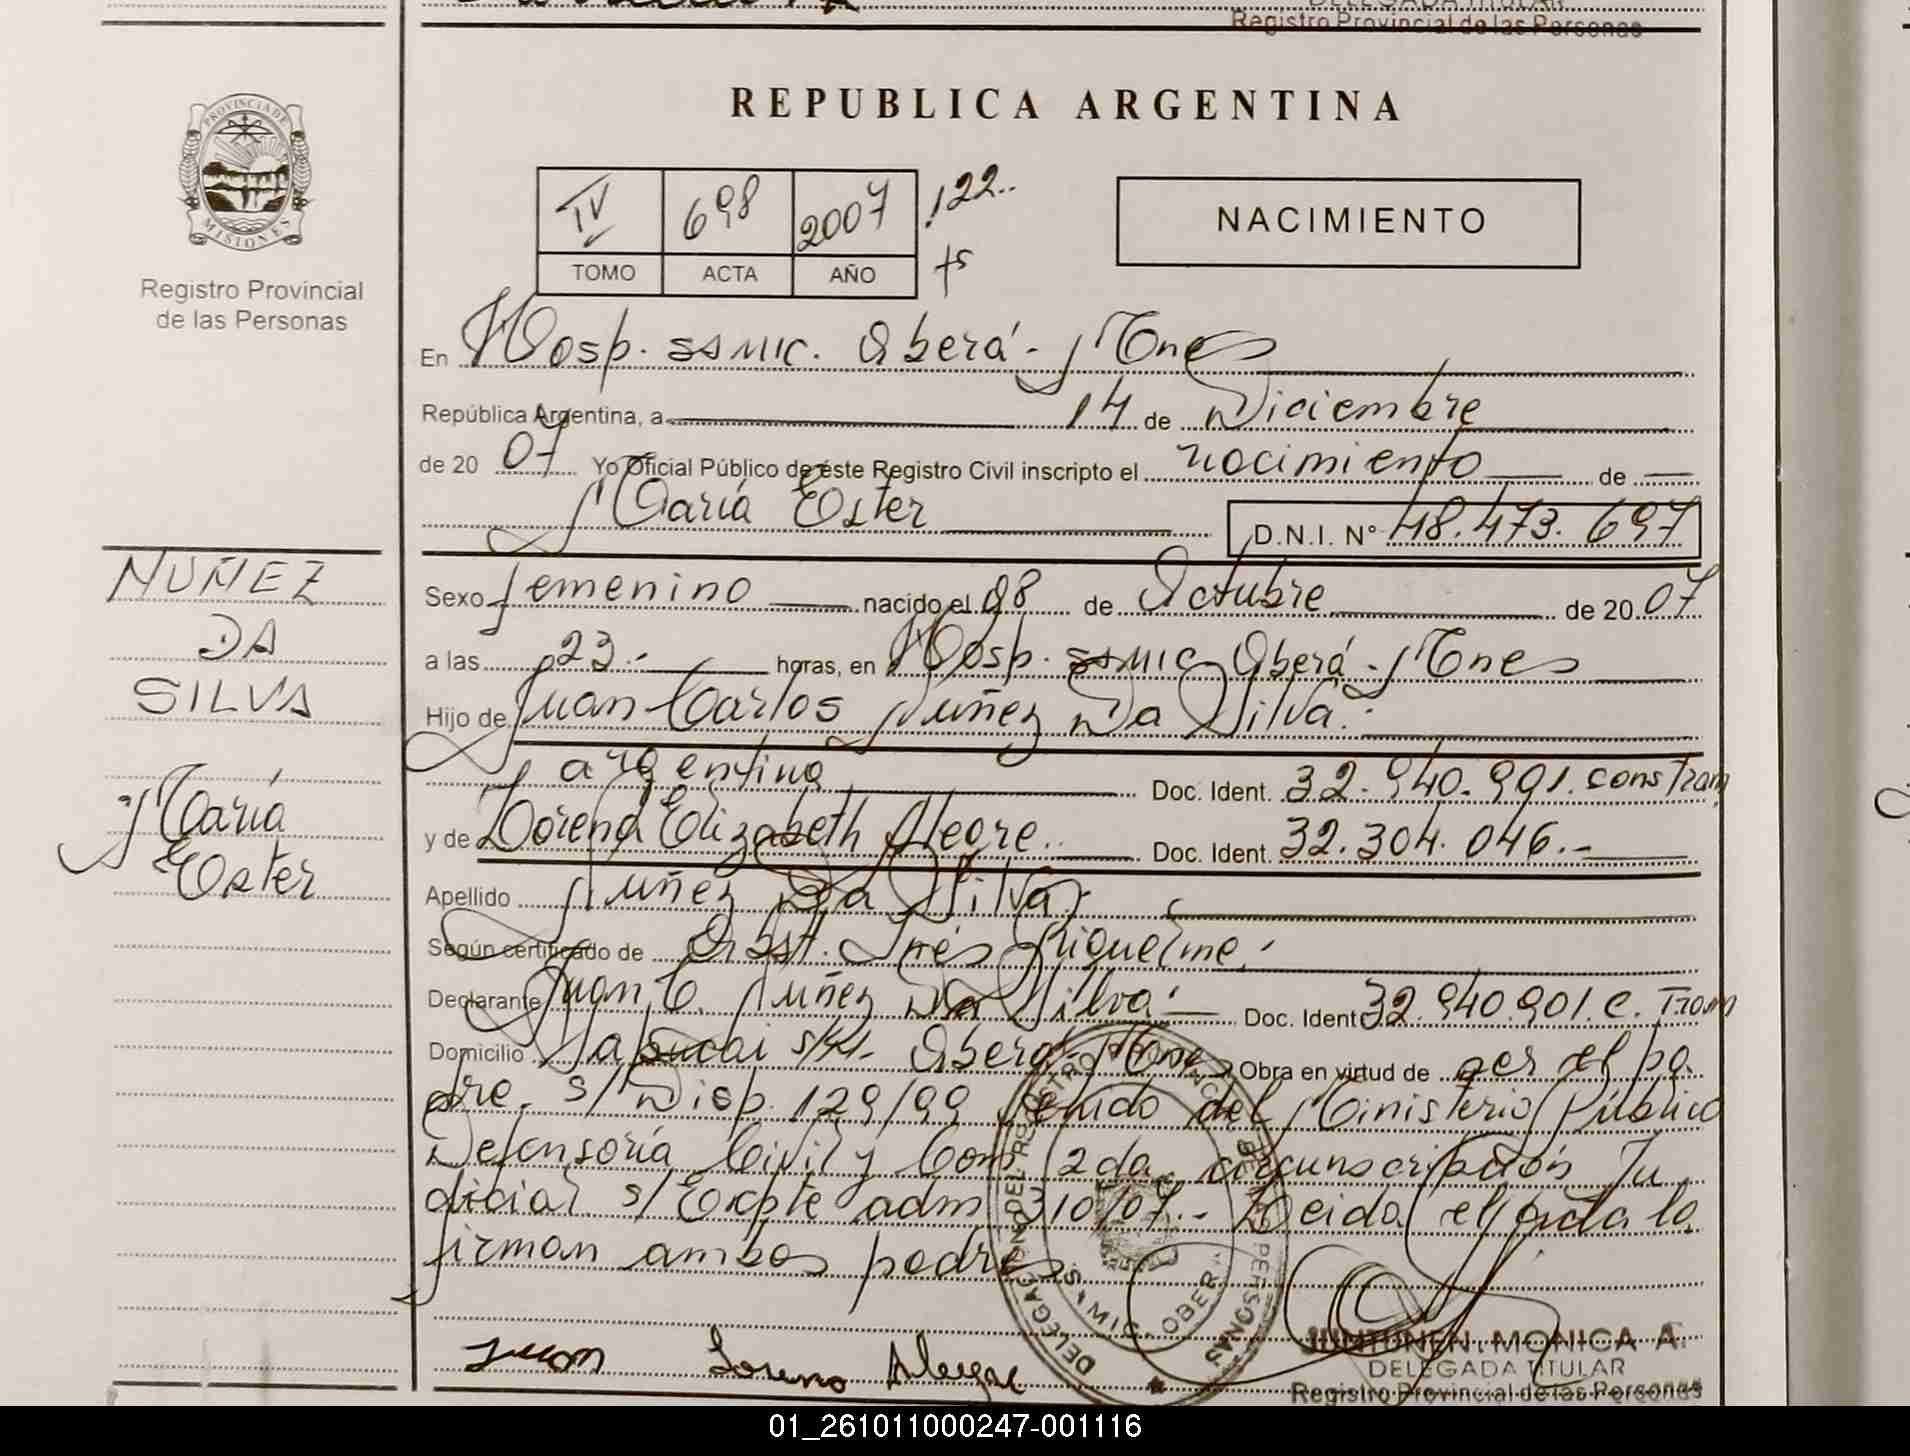 DELEGADA TITULAR
Registro Provincial de las Personas
PROVINCIA DE
MISIONES
Registro Provincial
de las Personas
REPUBLICA ARGENTINA
IV 698 2007 122..
TOMO ACTA AÑO fs
NACIMIENTO
En Hosp. SSMIC. Oberá - Mnes
República Argentina, a 14 de Diciembre
de 20 07 Yo Oficial Público de éste Registro Civil inscripto el nacimiento de
María Ester D.N.I. N° 48.473.697
NUÑEZ
DA
SILVA
María
Ester
Sexo femenino nacido el 08 de Octubre de 20 07
a las 23.- horas, en Hosp. SSMIC Oberá - Mnes
Hijo de Juan Carlos Nuñez Da Silva.-
argentina Doc. Ident. 32.940.901. cons Tram
y de Lorena Elizabeth Alegre.. Doc. Ident. 32.304.046.-
Apellido Nuñez Da Silva.-
Según certificado de Obst. Inés Riquelme.-
Declarante Juan C. Nuñez Da Silva.- Doc. Ident 32.940.901. C. Tram
Domicilio s/n.- Oberá - Mnes Obra en virtud de ser el pa
dre. s/ Disp. 129/99 del Ministerio Público
Defensoría Civil y Com 2da circunscripción Ju
dicial s/ Expte adm 310/07.- Leida el acta la
firman ambos padres
Juan Lorena Alegre
DELEGACION DEL REGISTRO PROVINCIAL DE LAS PERSONAS
JUNTUNEN, MONICA A.
DELEGADA TITULAR
Registro Provincial de las Personas
01_261011000247-001116